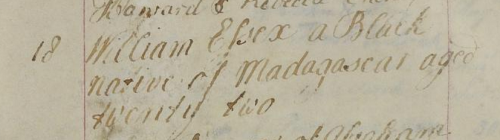 Howard & Rebecca
18 William Essex a Black
native of Madagascar aged
twenty two
of Abraham